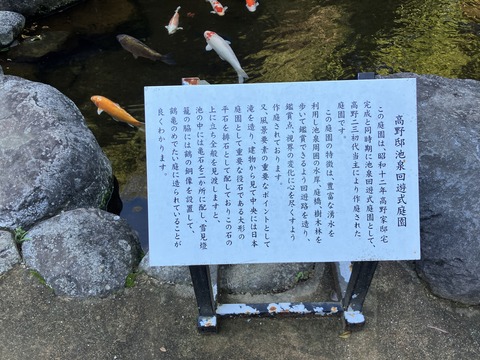 高野邸池泉回遊式庭園
この庭園は、昭和十二年高野家邸宅
完成と同時期に池泉回遊式庭園として、
高野二三初代当主により作庭された
庭園です。
この庭園の特徴は、豊富な湧水を
利用し池泉周囲の水岸、庭橋、樹木林を
歩いて鑑賞できるよう回遊路を造り、
鑑賞点、視界の変化に心を尽くすよう
作庭されております。
又、風景要素の重要なポイントとして
滝を造り、建物から見て中央には日本
庭園として重要な役石である大形の
平石を拝石として配しておりこの石の
上に立ち全般を見渡しますと、
池の中には亀石を三か所に配し、雪見燈
籠の脇には鶴の銅像を設置して、
鶴亀のめでたい庭に造られていることが
良くわかります。